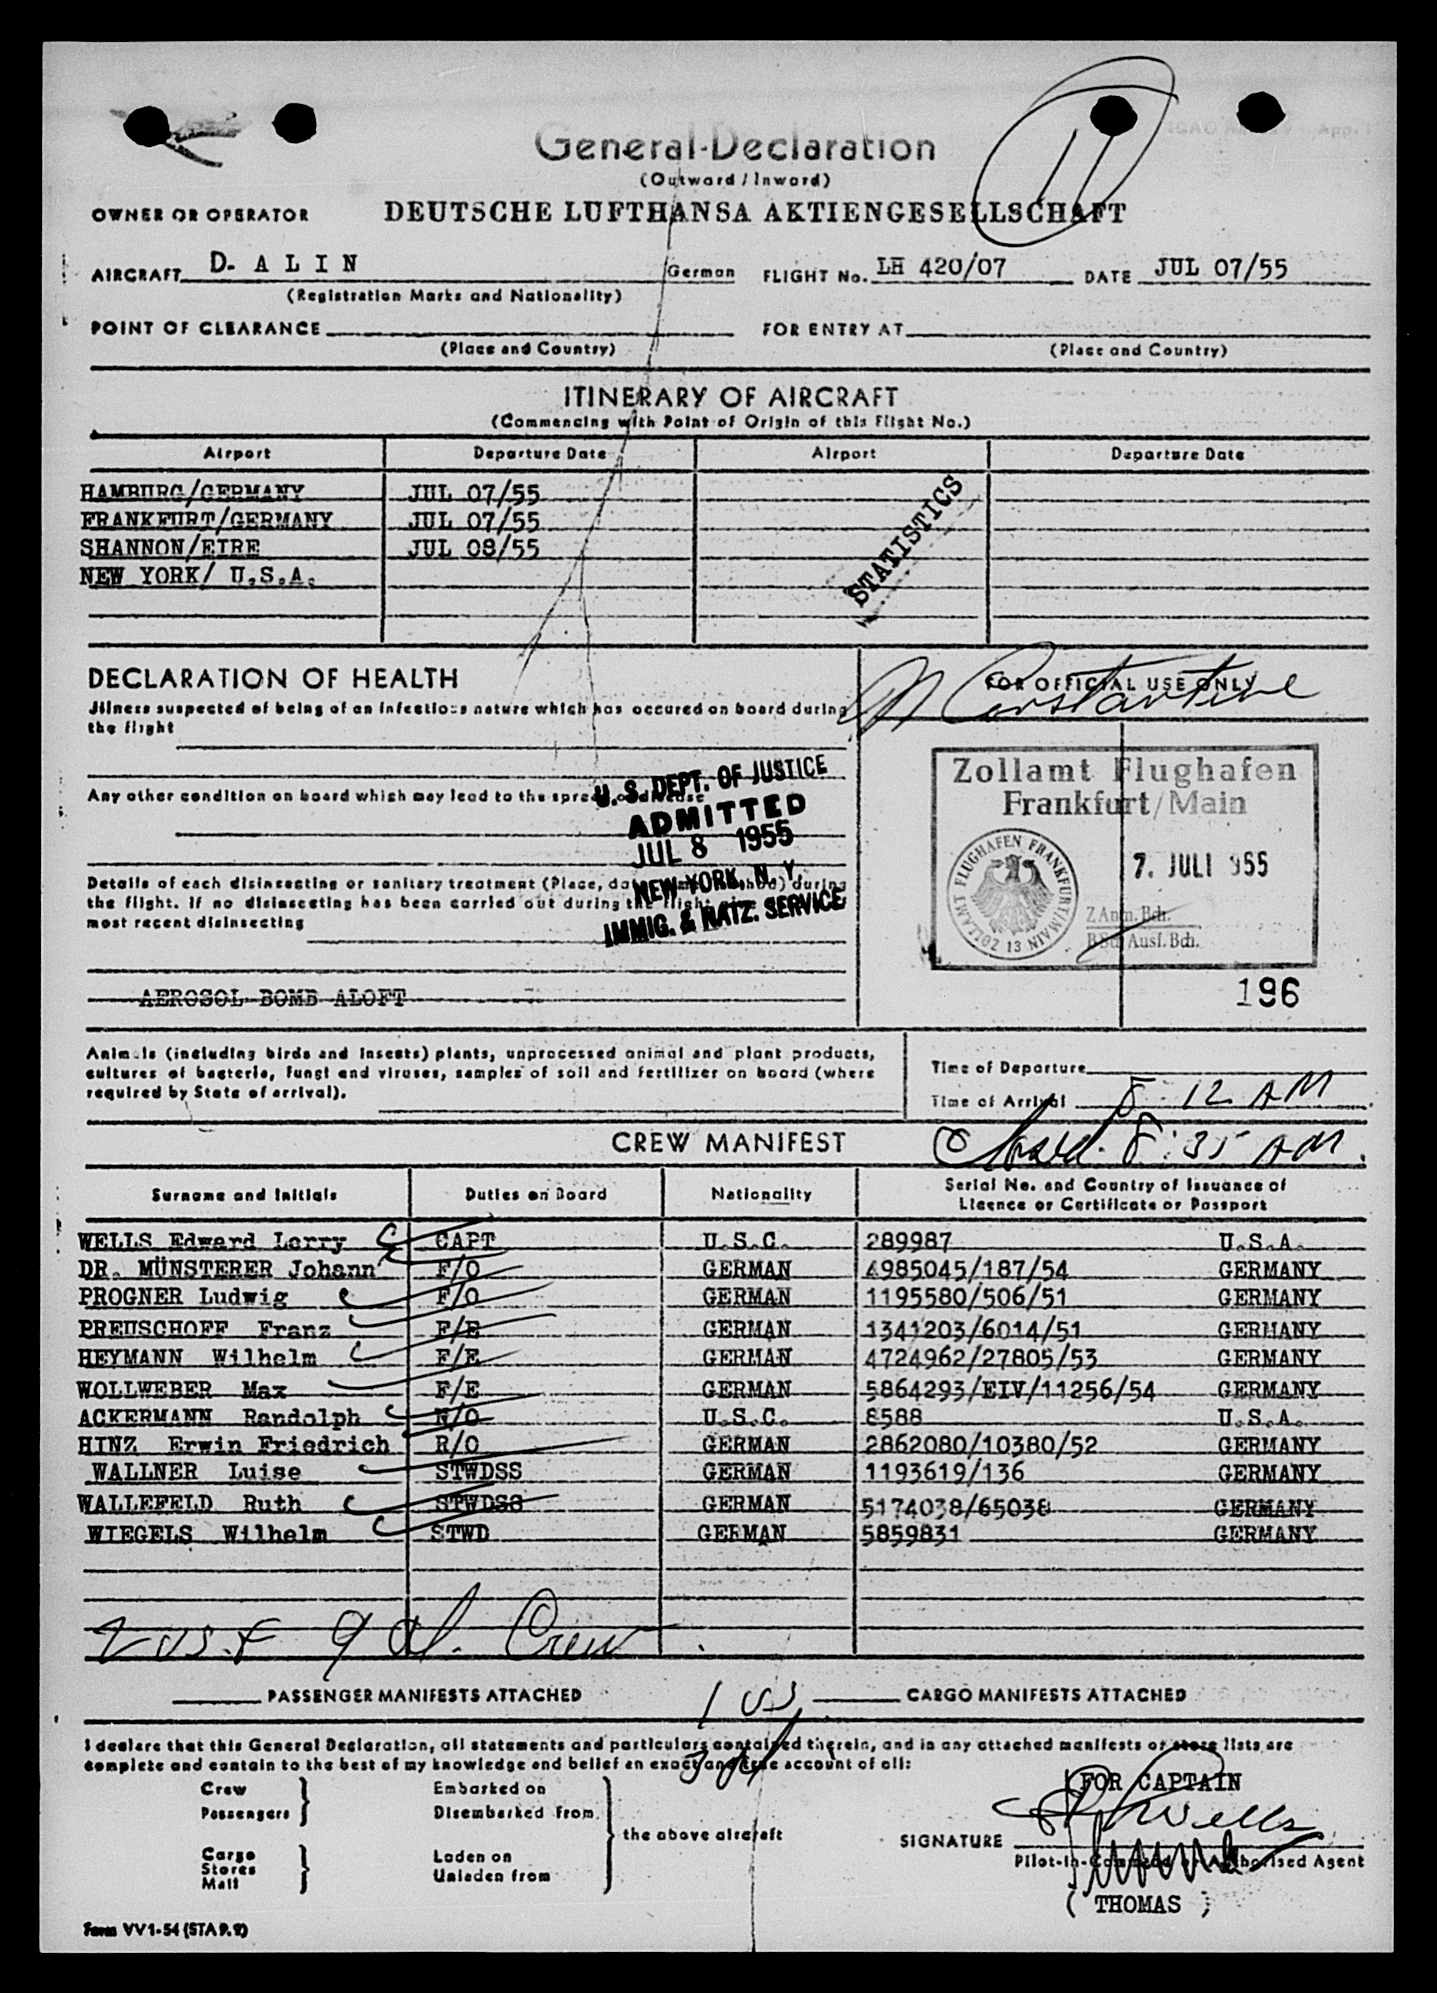 General-Declaration
(Outward / Inward)
OWNER OR OPERATOR DEUTSCHE LUFTHANSA AKTIENGESELLSCHAFT
11
AIRCRAFT D- A L I N German FLIGHT No. LH 420/07 DATE JUL 07/55
(Registration Marks and Nationality)
POINT OF CLEARANCE FOR ENTRY AT
(Place and Country) (Place and Country)
ITINERARY OF AIRCRAFT
(Commencing with Point of Origin of this Flight No.)
Airport Departure Date Airport Departure Date
HAMBURG/GERMANY JUL 07/55
FRANKFURT/GERMANY JUL 07/55
SHANNON/EIRE JUL 08/55
NEW YORK/ U.S.A.
STATISTICS
DECLARATION OF HEALTH
Illness suspected of being of an infectious nature which has occured on board during
the flight
Any other condition on board which may lead to the spread of disease
U. S. DEPT. OF JUSTICE
ADMITTED
JUL 8 1955
NEW YORK, N. Y.
IMMIG. & NATZ. SERVICE
Details of each disinsecting or sanitary treatment (Place, date, time, method) during
the flight. If no disinsecting has been carried out during the flight give details of
most recent disinsecting
AEROSOL BOMB ALOFT
FOR OFFICIAL USE ONLY
M Constantine
Zollamt Flughafen
Frankfurt/Main
ZOLLAMT FLUGHAFEN FRANKFURT/MAIN
13
7. JULI 955
Z Anm. Bch.
Ausf. Bch.
196
Animals (including birds and insects) plants, unprocessed animal and plant products,
cultures of bacteria, fungi and viruses, samples of soil and fertilizer on board (where
required by State of arrival).
Time of Departure
Time of Arrival 8:12 AM
8:35 AM.
CREW MANIFEST
Surname and Initials Duties on Board Nationality Serial No. and Country of Issuance of
Licence or Certificate or Passport
WELLS Edward Lorry CAPT U.S.C. 289987 U.S.A.
DR. MÜNSTERER Johann F/O GERMAN 4985045/187/54 GERMANY
PROGNER Ludwig F/O GERMAN 1195580/506/51 GERMANY
PREUSCHOFF Franz F/E GERMAN 1341203/6014/51 GERMANY
HEYMANN Wilhelm F/E GERMAN 4724962/27805/53 GERMANY
WOLLWEBER Max F/E GERMAN 5864293/EIV/11256/54 GERMANY
ACKERMANN Randolph N/O U.S.C. 8588 U.S.A.
HINZ Erwin Friedrich R/O GERMAN 2862080/10380/52 GERMANY
WALLNER Luise STWDSS GERMAN 1193619/136 GERMANY
WALLEFELD Ruth STWDSS GERMAN 5174038/65038 GERMANY
WIEGELS Wilhelm STWD GERMAN 5859831 GERMANY
2 US.F 9 al. Crew
PASSENGER MANIFESTS ATTACHED CARGO MANIFESTS ATTACHED
I declare that this General Declaration, all statements and particulars contained therein, and in any attached manifests or store lists are
complete and contain to the best of my knowledge and belief an exact and true account of all:
Crew
Passengers
Embarked on
Disembarked from
Cargo
Stores
Mail
Laden on
Unladen from
the above aircraft
FOR CAPTAIN
SIGNATURE
Pilot-in-Command or Authorised Agent
( THOMAS )
Form VV 1-54 (STA P. 9)